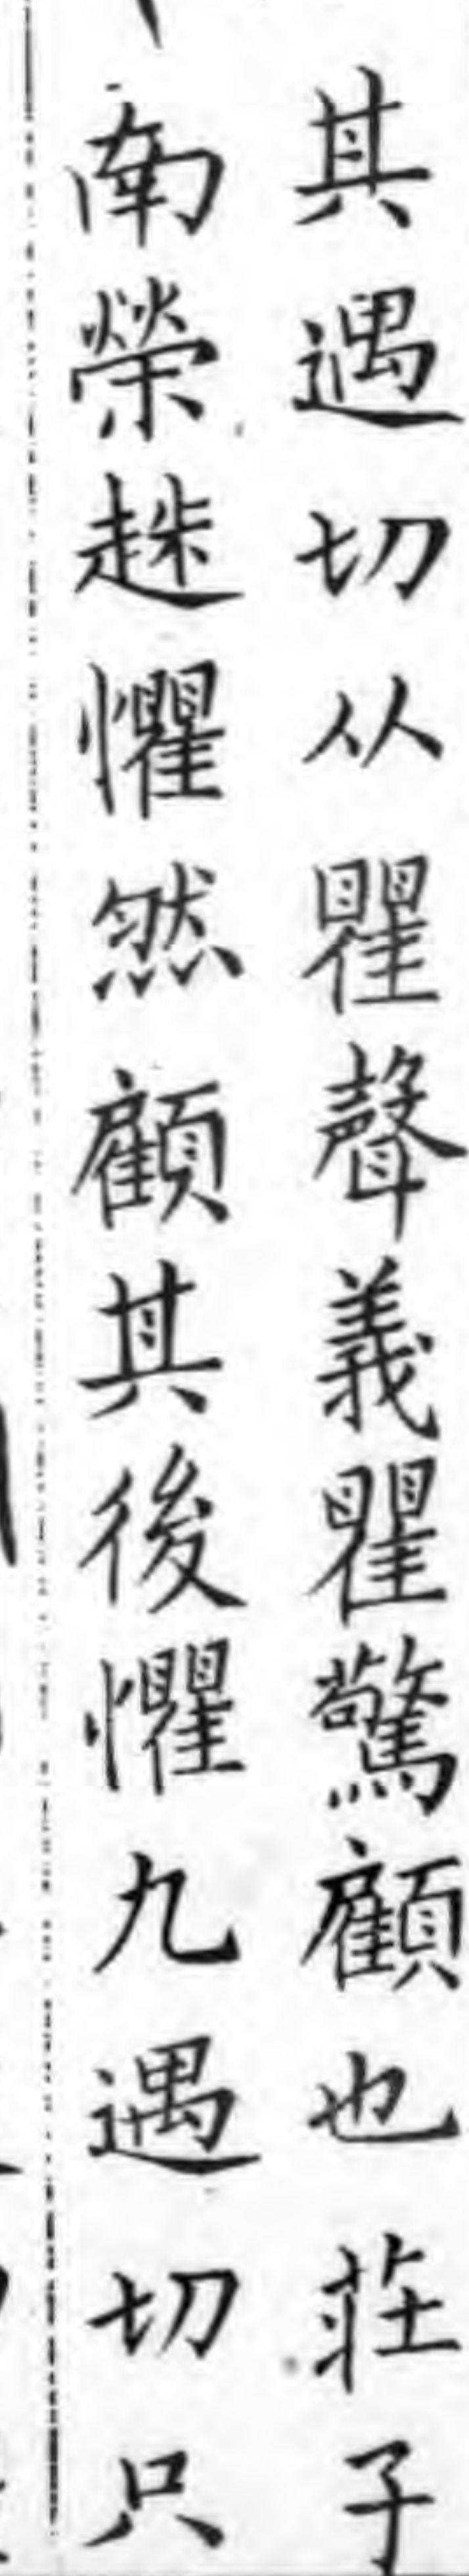 其遇切从瞿聲義瞿驚顧也莊子
南榮趎懼然顧其後懼九遇切只